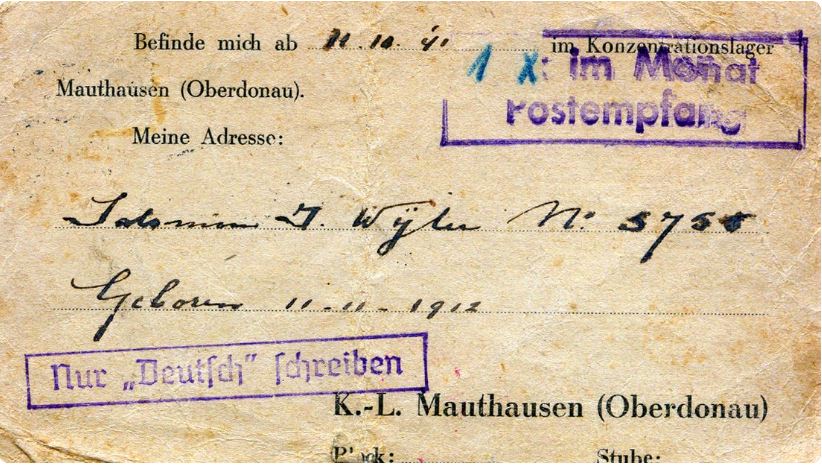 Befinde mich ab 11.10.41 im Konzentrationslager
1 X: im Monat
Mauthausen (Oberdonau).
Postempfang
Meine Adresse:
Salomon I. Wijler No.
Geboren 11-11-1912
Nur „Deutsch" schreiben
K.-L. Mauthausen (Oberdonau)
Block: Stube: